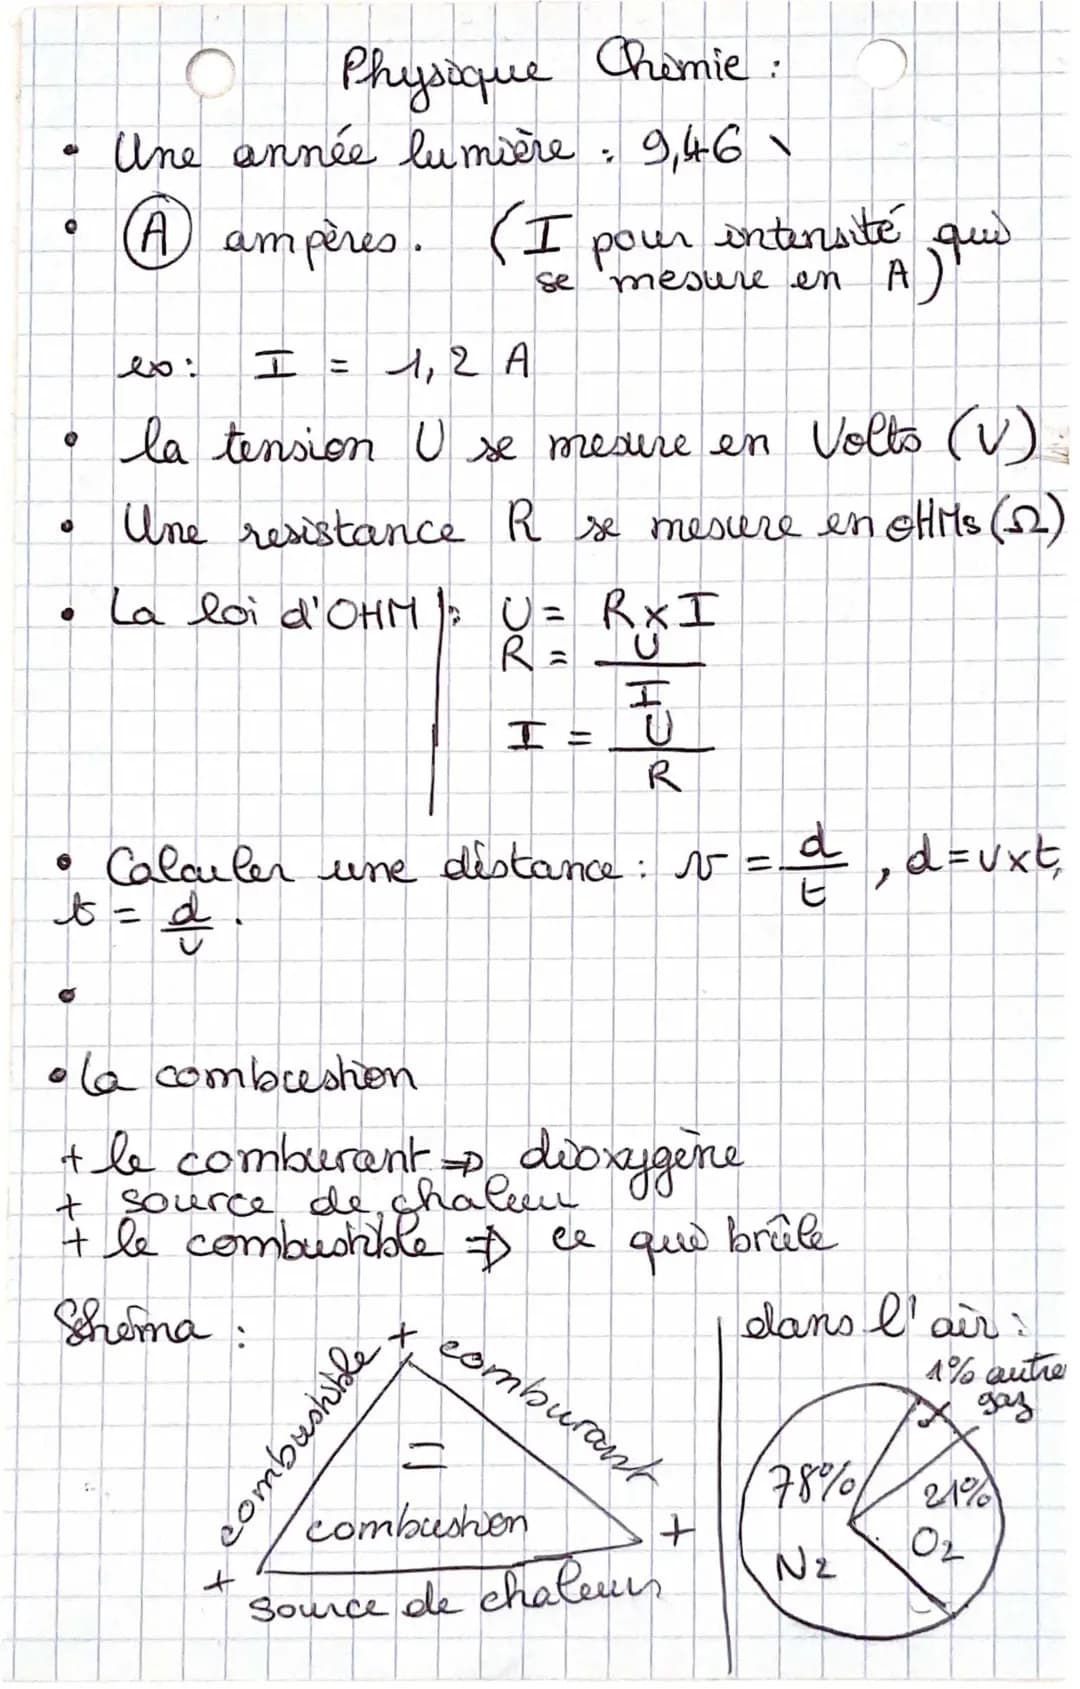 Physique Chimie :
• Une année lumière : 9,46 \
• Ⓐ ampères. (I pour intensité qui
se mesure en A)
ex: I = 1,2 A
• la tension U se mesure en Volts (V)
• Une resistance R se mesure en oHMs (Ω)
• La loi d'OHM : U = R x I
R = U
I
I = U
R
• Calculer une distance : v = d/t , d = v x t,
t = d/v .
•
• la combustion
+ le comburant ⇒ dioxygène
+ source de chaleur
+ le combustible ⇒ ce qui brûle
Schéma :
+
combustible
comburant
=
combustion
+
+
source de chaleur
dans l'air :
1% autre
gaz
78%
N2
21%
O2